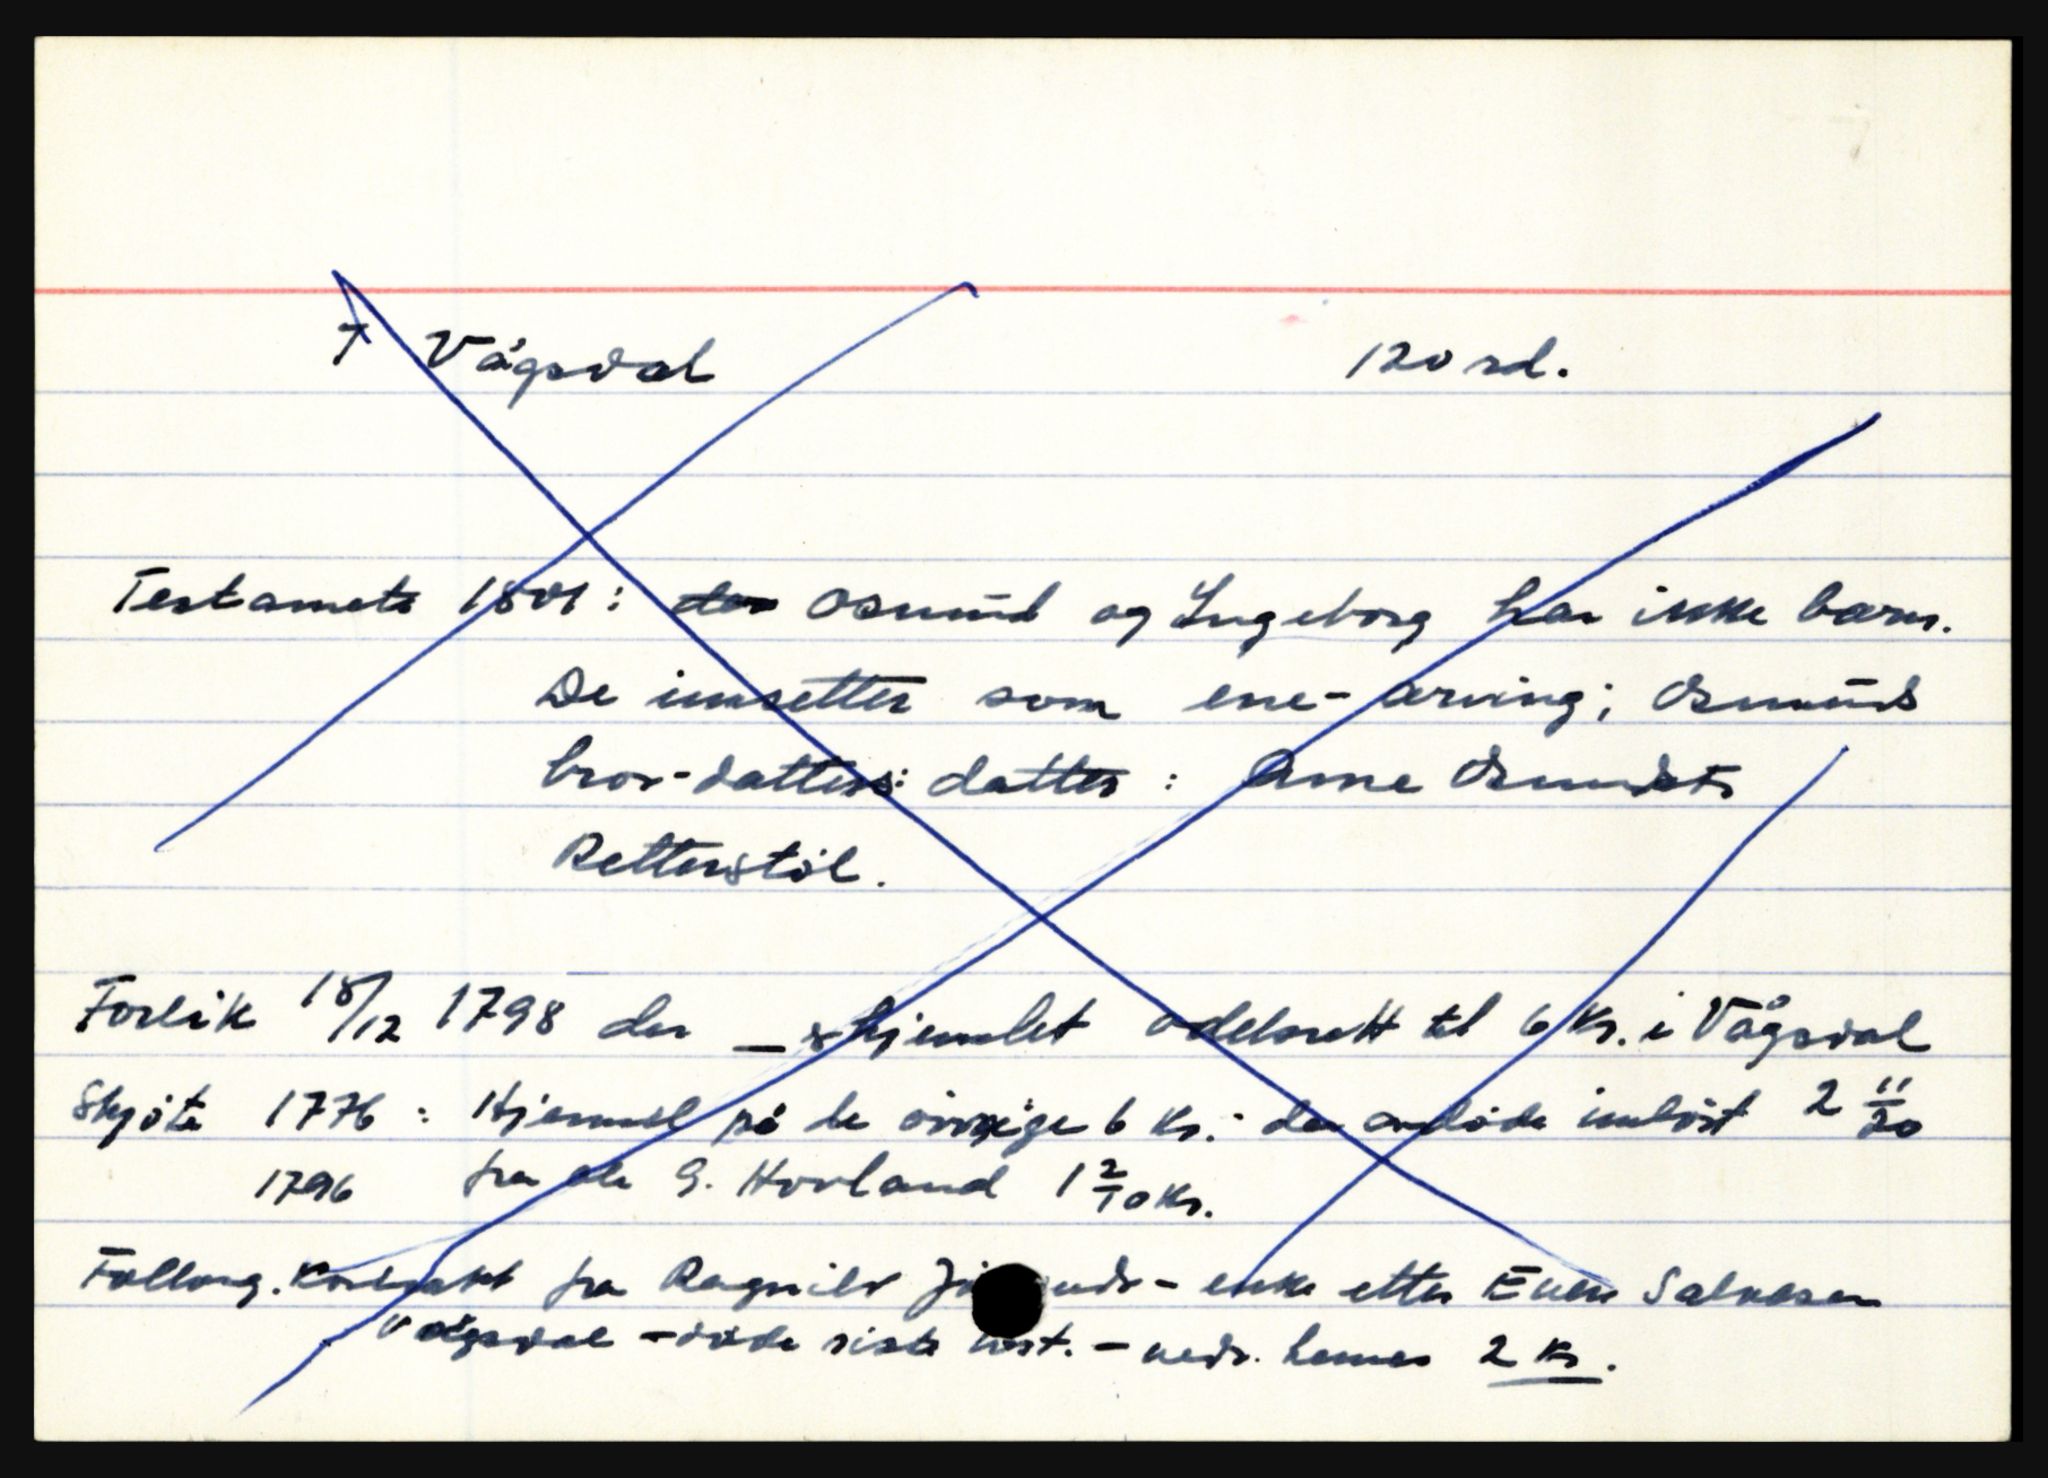 Vågsdal 120 rd.
Testamete 1801: Osmund og Ingeborg har ikke barn.
De innsetter som ene-arving; Osmunds
bror-datters: datter: Anne Osmundsts
Retterstöl.
Forlik 18/12 1798 der _ hjemlet odelsrett til 6 kr. i Vågsdal
Skjöte 1776: Hjemmel på de övrige 6 kr.: den avdöde innlöst 2 11/20
1796 fra Ole G. Hovland 1 2/10 kr.
Follaug. Kontrakt fra Ragnild enke etter Even Salvesen
Vågsdal - döde siste höst. - vedr. hennes 2 kr.